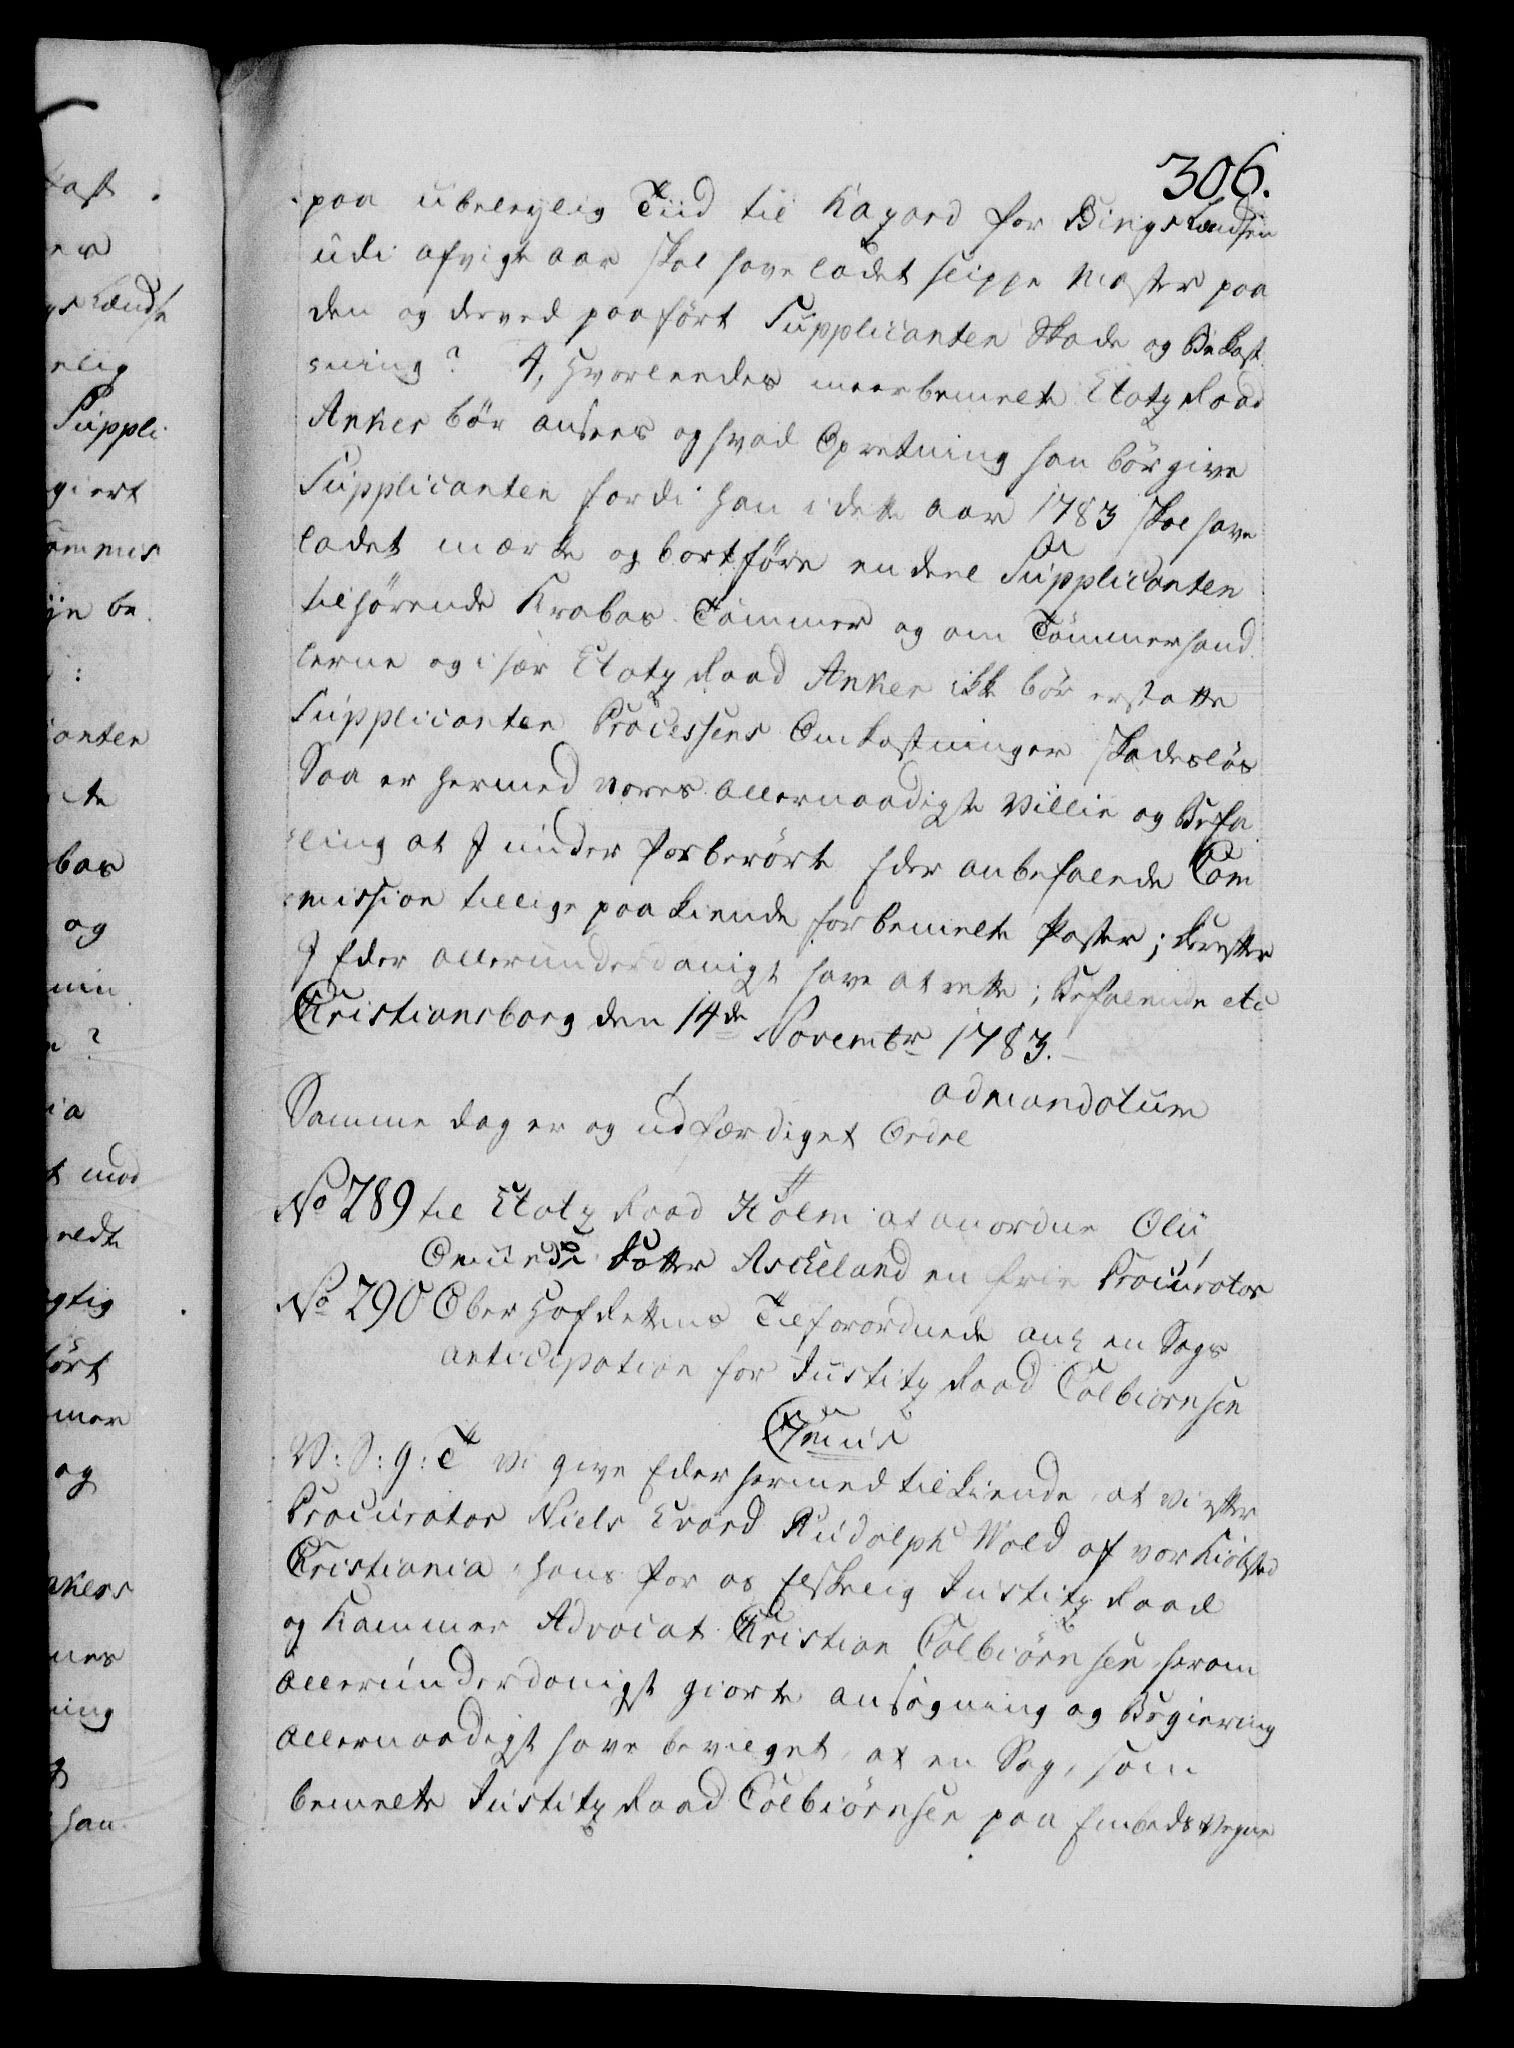 306.
paa ubeleylig Tiid til Kaxard for Bings Lændsen
udi afvigte aar skal have ladet slippe Master paa
den og derved paaført Supplicanten Skade og Bekost
ning? 4, hvorleedes meerbemelte Etatz Raad
Anker bör ansees og hvad Opretning han bör give
Supplicanten fordi han i dette aar 1783 skal have
ladet mærke og bortføre en deel Supplicanten
tilhørende Krabas Tømmer og om Tømmerhand
lerne og i sær Etatz Raad Anker ikke bör erstatte
Supplicanten Processens Omkostninger skadesløs
Saa er hermed vores allernaadigste Villie og Befa
ling at I under forberørte Eder anbefalende Com
mission tillige paakiende forbemelte Poster; derefter
I Eder allerunderdanigst have at rette; Befalende etc
Christiansborg den 14de Novembr 1783.
ad mandatum
Samme dag er og udfærdiget Ordre
No 289 til Etatz Raad Holm at anordne Oluf
Askeland en frie Procurator
No 290 Ober Hof Rettens Tilforordnede anl en Sags
anticipation for Justitz Raad Colbiørnsen
V: S: G: T Vi give Eder hermed tilkiende, at Vi efter
Procurator Niels Evard Rudolph Wold af vor Kiøbsted
Christiania hans for os Elskelig Justitz Raad
og Kammer Advocat Christian Colbiørnsen herom
allerunderdanigst giorte ansøgning og Begiering
allernaadigst have bevilget, at en Sag, som
bemelte Justitz Raad Colbiørnsen paa Embeds Vegne